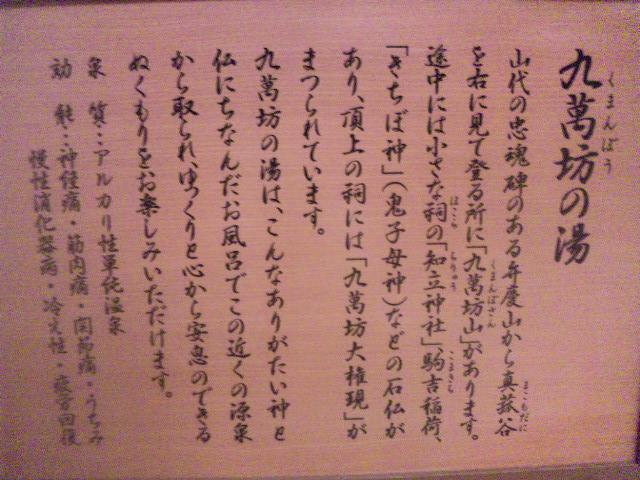 九萬坊の湯
山代の忠魂碑のある弁慶山から真菰谷
を右に見て登る所に「九萬坊山」があります。
途中には小さな祠の「知立神社」駒吉稲荷、
「きちぼ神」(鬼子母神)などの石仏が
あり、頂上の祠には「九萬坊大権現」が
まつられています。
九萬坊の湯は、こんなありがたい神と
仏にちなんだお風呂でこの近くの源泉
から取られ、ゆっくりと心から安息のできる
ぬくもりをお楽しみいただけます。
泉 質：アルカリ性単純温泉
効 能：神経痛・筋肉痛・関節痛・うちみ
慢性消化器病・冷え性・疲労回復